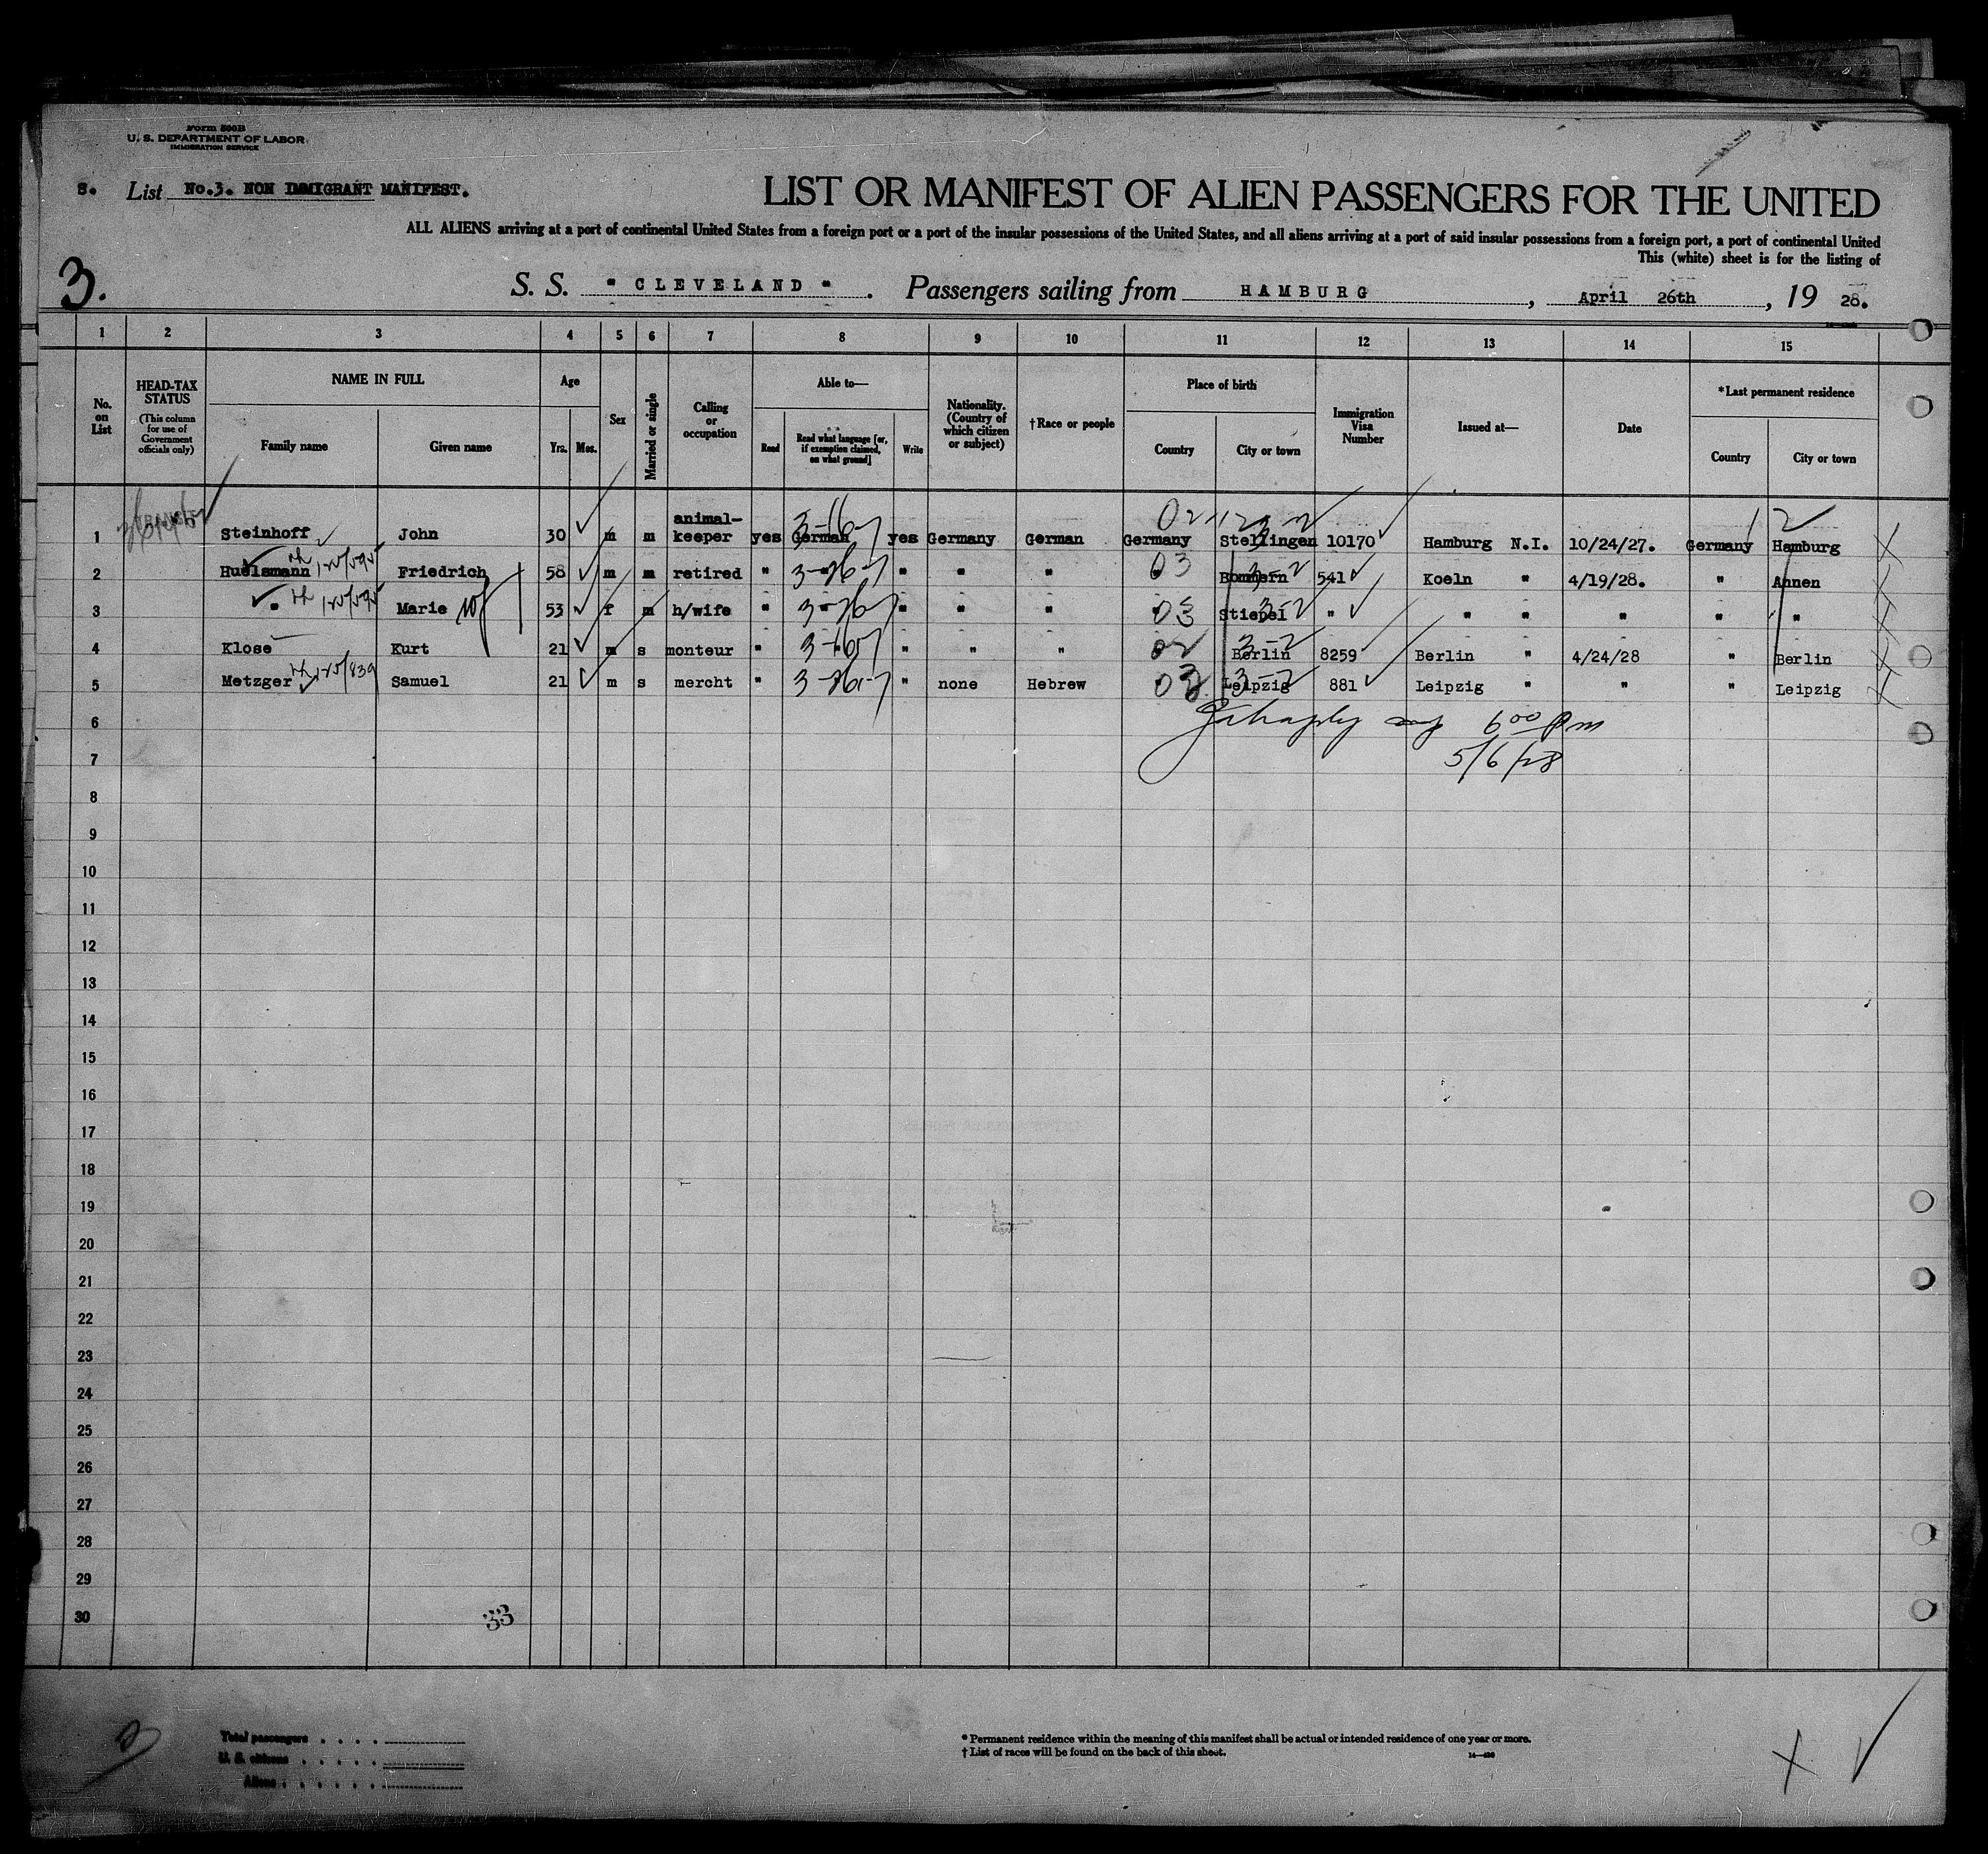 Form 500B
U. S. DEPARTMENT OF LABOR
IMMIGRATION SERVICE
S. List No.3. NON IMMIGRANT MANIFEST.
LIST OR MANIFEST OF ALIEN PASSENGERS FOR THE UNITED
ALL ALIENS arriving at a port of continental United States from a foreign port or a port of the insular possessions of the United States, and all aliens arriving at a port of said insular possessions from a foreign port, a port of continental United
This (white) sheet is for the listing of
3.
S. S. " CLEVELAND ". Passengers sailing from HAMBURG, April 26th, 19 28.
1 2 3 4 5 6 7 8 9 10 11 12 13 14 15
No. on List
HEAD-TAX STATUS (This column for use of Government officials only)
NAME IN FULL
Family name Given name
Age
Yrs. Mos.
Sex
Married or single
Calling or occupation
Able to—
Read Read what language [or, if exemption claimed, on what ground] Write
Nationality. (Country of which citizen or subject)
†Race or people
Place of birth
Country City or town
Immigration Visa Number
Issued at—
Date
*Last permanent residence
Country City or town
1 Steinhoff John 30 m m animal-keeper yes German yes Germany German Germany Stellingen 10170 Hamburg N.I. 10/24/27. Germany Hamburg
2 Huelsmann Friedrich 58 m m retired " " " " " Bommern 541 Koeln " 4/19/28. " Annen
3 " Marie 53 f m h/wife " " " " " Stiepel " " " " " "
4 Klose Kurt 21 m s monteur " " " " " Berlin 8259 Berlin " 4/24/28 " Berlin
5 Metzger Samuel 21 m s mercht " " " none Hebrew " Leipzig 881 Leipzig " " " Leipzig
6 6 00 pm
7 5/6/28
8
9
10
11
12
13
14
15
16
17
18
19
20
21
22
23
24
25
26
27
28
29
30
33
Total passengers
U. S. citizens
Aliens
* Permanent residence within the meaning of this manifest shall be actual or intended residence of one year or more.
† List of races will be found on the back of this sheet.